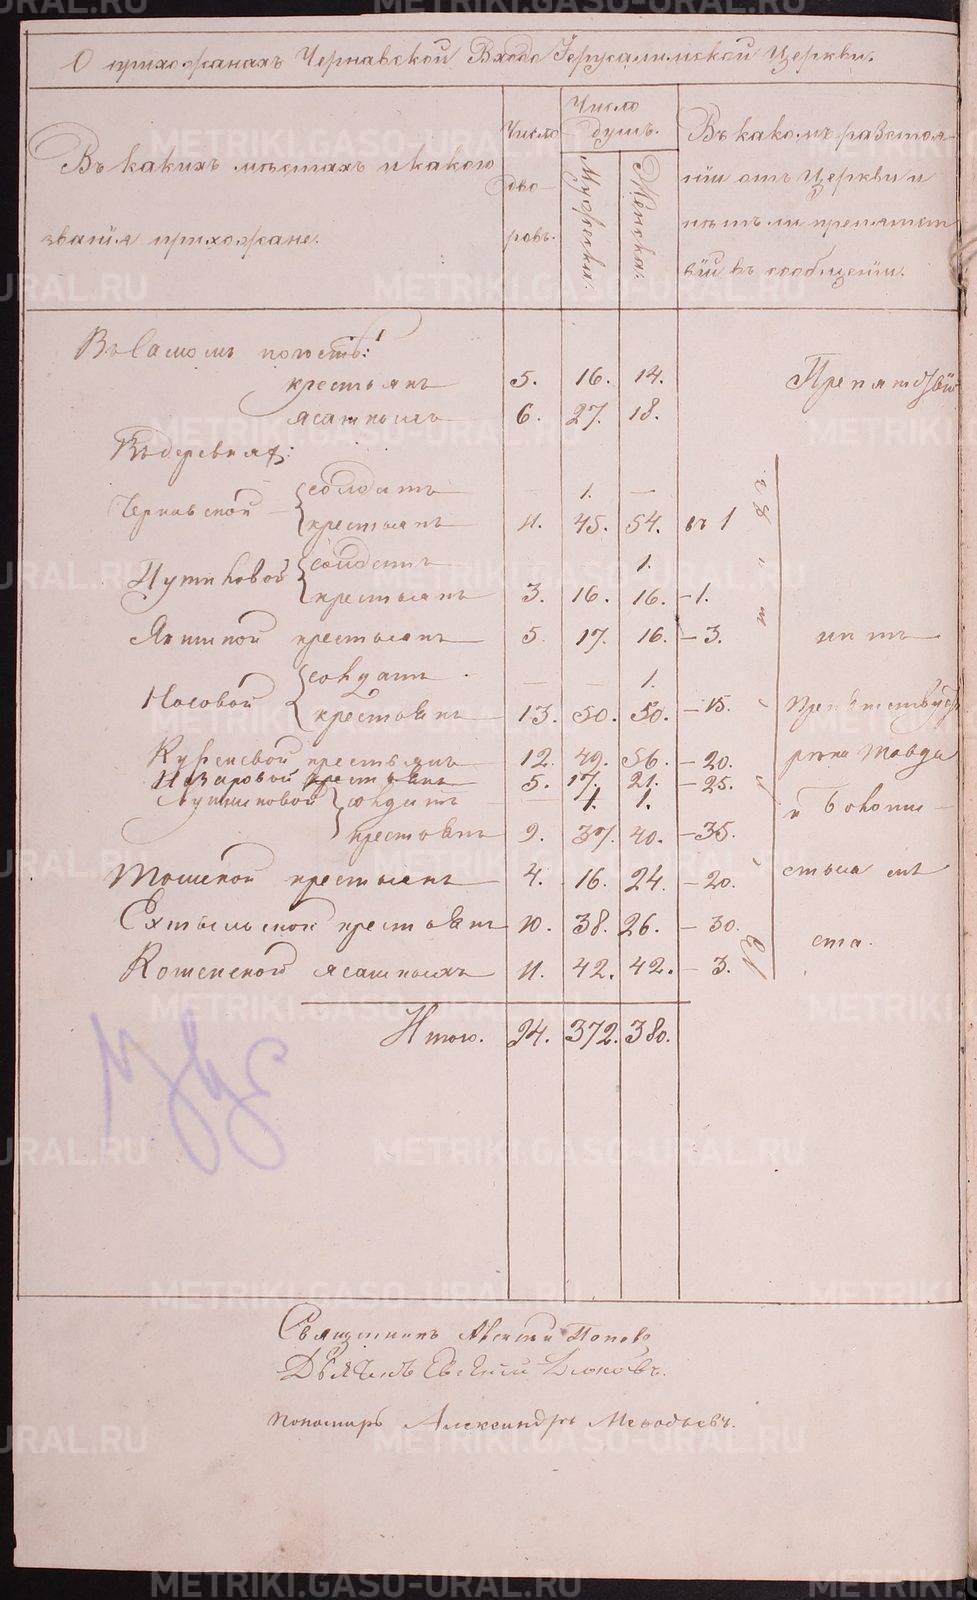 О прихожанахъ Чернавской Входо Іерусалимской Церкви.
Въ какихъ мѣстахъ и какого
званія прихожане.
Число
дво-
ровъ.
Число
душъ.
Мужеска:
Женска:
Въ какомъ разстоя-
ніи отъ Церкви и
нѣтъ ли препятст
вій въ сообщеніи.
Въ самомъ погостѣ:
крестьянъ 5. 16. 14. Препятствій
ясашныхъ 6. 27. 18.
Въ деревняхъ:
Чернавской солдатъ — 1. —
крестьянъ 11. 45. 54. въ 1
солдатъ 1.
крестьянъ 3. 16. 16. – 1.
крестьянъ 5. 17. 16. – 3. нѣтъ
Носовой солдатъ — — 1.
крестьянъ 13. 50. 50. – 15. препятствуетъ
крестьянъ 12. 49. 56. – 20. рѣка Тавда
Назаровой крестьянъ 5. 17. 21. – 25.
солдатъ — 1. 1. и болотис-
крестьянъ 9. 37. 40. – 35.
Тошской крестьянъ 4. 16. 24. – 20. стыя мѣ
крестьянъ 10. 38. 26. – 30. ста.
ясашныхъ 11. 42. 42. – 3.
Итого. 94. 372. 380.
Священникъ Поповъ
Дьячекъ Евгеній
Пономарь Александръ Меѳодьевъ.
METRIKI.GASO-URAL.RU